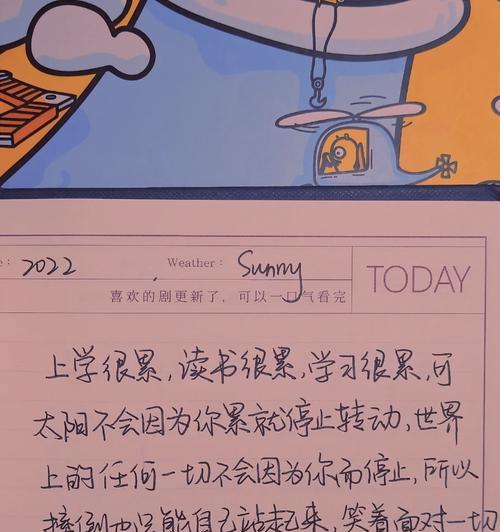 : 2022 Weather: Sunny
TODAY
喜欢的剧更新了，可以一口气看完
上学很累，读书很累，学习很累，可
太阳不会因为你累就停止转动，世界
上的任何一切不会因为你而停止，所以
摔倒也只能自己站起来，笑着面对一切